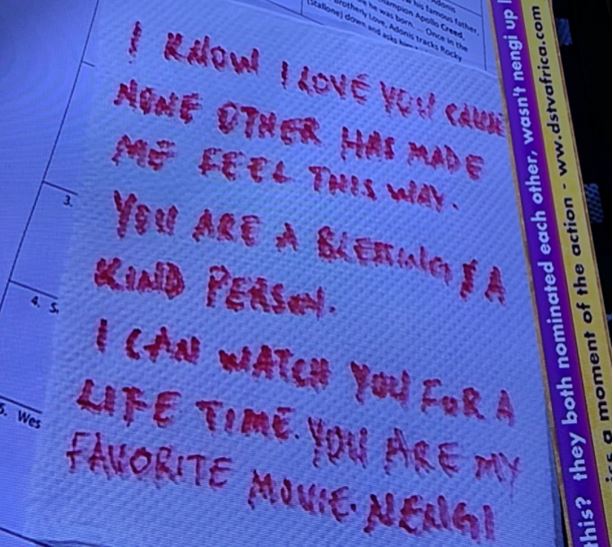 his famous father,
Champion Apollo Creed,
he was born... Once in the
Brotherly Love, Adonis tracks Rocky
(Stallone) down and asks him
I KNOW I LOVE YOU CAUSE
NONE OTHER HAS MADE
ME FEEL THIS WAY.
YOU ARE A BLESSING & A
KIND PERSON.
I CAN WATCH YOU FOR A
LIFE TIME. YOU ARE MY
FAVORITE MOVIE. NENGI
3.
4. S
5. Wes
this? they both nominated each other, wasn't nengi up
a moment of the action - www.dstvafrica.com